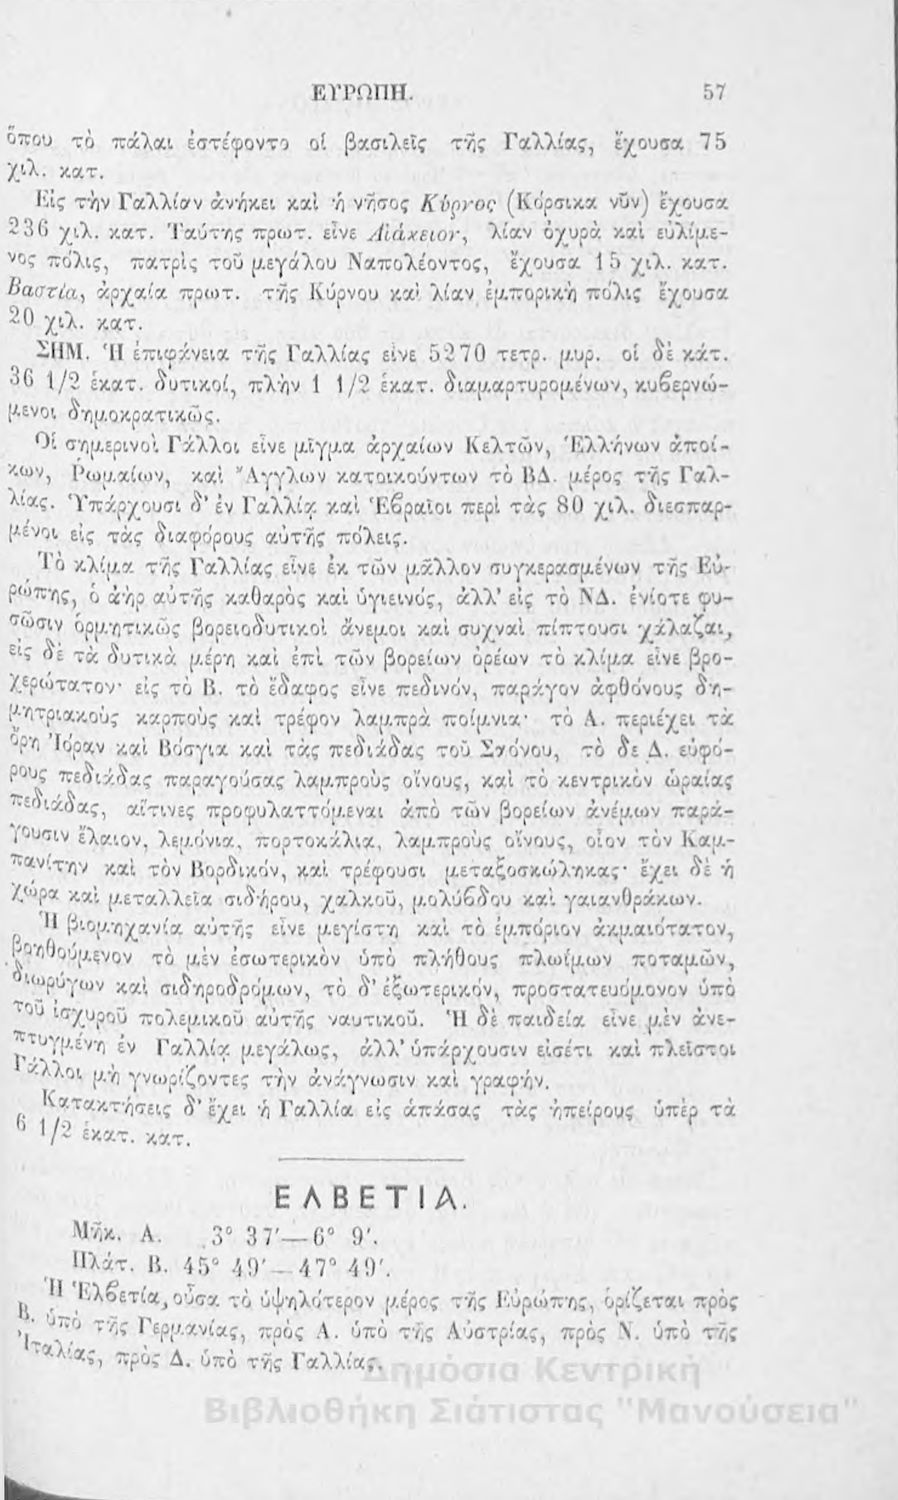 ΕΥΡΩΠΗ. 57
ὅπου τὸ πάλαι ἐστέφοντο οἱ βασιλεῖς τῆς Γαλλίας, ἔχουσα 75
χιλ. κατ.
Εἰς τὴν Γαλλίαν ἀνήκει καὶ ἡ νῆσος Κύρνος (Κόρσικα νῦν) ἔχουσα
236 χιλ. κατ. Ταύτης πρωτ. εἶνε Αἰάκειον, λίαν ὀχυρὰ καὶ εὐλίμε-
νος πόλις, πατρὶς τοῦ μεγάλου Ναπολέοντος, ἔχουσα 15 χιλ. κατ.
Βαστία, ἀρχαία πρωτ. τῆς Κύρνου καὶ λίαν ἐμπορικὴ πόλις ἔχουσα
20 χιλ. κατ.
ΣΗΜ. Ἡ ἐπιφάνεια τῆς Γαλλίας εἶνε 5270 τετρ. μυρ. οἱ δὲ κάτ.
36 1/2 ἑκατ. δυτικοί, πλὴν 1 1/2 ἑκατ. διαμαρτυρομένων, κυβερνώ-
μενοι δημοκρατικῶς.
Οἱ σημερινοὶ Γάλλοι εἶνε μῖγμα ἀρχαίων Κελτῶν, Ἑλλήνων ἀποί-
κων, Ῥωμαίων, καὶ Ἄγγλων κατοικούντων τὸ ΒΔ. μέρος τῆς Γαλ-
λίας. Ὑπάρχουσι δ' ἐν Γαλλίᾳ καὶ Ἑβραῖοι περὶ τὰς 80 χιλ. διεσπαρ-
μένοι εἰς τὰς διαφόρους αὐτῆς πόλεις.
Τὸ κλίμα τῆς Γαλλίας εἶνε ἐκ τῶν μᾶλλον συγκερασμένων τῆς Εὐ-
ρώπης, ὁ ἀὴρ αὐτῆς καθαρὸς καὶ ὑγιεινός, ἀλλ' εἰς τὸ ΝΔ. ἐνίοτε φυ-
σῶσιν ὁρμητικῶς βορειοδυτικοὶ ἄνεμοι καὶ συχναὶ πίπτουσι χάλαζαι,
εἰς δὲ τὰ δυτικὰ μέρη καὶ ἐπὶ τῶν βορείων ὀρέων τὸ κλίμα εἶνε βρο-
χερώτατον· εἰς τὸ Β. τὸ ἔδαφος εἶνε πεδινόν, παράγον ἀφθόνους δη-
μητριακοὺς καρποὺς καὶ τρέφον λαμπρὰ ποίμνια· τὸ Α. περιέχει τὰ
ὄρη Ἰόραν καὶ Βόσγια καὶ τὰς πεδιάδας τοῦ Σαόνου, τὸ δε Δ. εὐφό-
ρους πεδιάδας παραγούσας λαμπροὺς οἴνους, καὶ τὸ κεντρικὸν ὡραίας
πεδιάδας, αἵτινες προφυλαττόμεναι ἀπὸ τῶν βορείων ἀνέμων παρά-
γουσιν ἔλαιον, λεμόνια, πορτοκάλια, λαμπροὺς οἴνους, οἷον τὸν Καμ-
πανίτην καὶ τὸν Βορδικόν, καὶ τρέφουσι μεταξοσκώληκας· ἔχει δὲ ἡ
χώρα καὶ μεταλλεῖα σιδήρου, χαλκοῦ, μολύβδου καὶ γαιανθράκων.
Ἡ βιομηχανία αὐτῆς εἶνε μεγίστη καὶ τὸ ἐμπόριον ἀκμαιότατον,
βοηθούμενον τὸ μὲν ἐσωτερικὸν ὑπὸ πλήθους πλωΐμων ποταμῶν,
διωρύγων καὶ σιδηροδρόμων, τὸ δ' ἐξωτερικόν, προστατευόμονον ὑπὸ
τοῦ ἰσχυροῦ πολεμικοῦ αὐτῆς ναυτικοῦ. Ἡ δὲ παιδεία εἶνε μὲν ἀνε-
πτυγμένη ἐν Γαλλίᾳ μεγάλως, ἀλλ' ὑπάρχουσιν εἰσέτι καὶ πλεῖστοι
Γάλλοι μὴ γνωρίζοντες τὴν ἀνάγνωσιν καὶ γραφήν.
Κατακτήσεις δ' ἔχει ἡ Γαλλία εἰς ἁπάσας τὰς ἠπείρους ὑπὲρ τὰ
6 1/2 ἑκατ. κατ.
ΕΛΒΕΤΙΑ.
Μῆκ. Α. 3° 37'—6° 9'.
Πλάτ. Β. 45° 49'—47° 49'.
Ἡ Ἑλβετία, οὖσα τὸ ὑψηλότερον μέρος τῆς Εὐρώπης, ὁρίζεται πρὸς
Β. ὑπὸ τῆς Γερμανίας, πρὸς Α. ὑπὸ τῆς Αὐστρίας, πρὸς Ν. ὑπὸ τῆς
Ἰταλίας, πρὸς Δ. ὑπὸ τῆς Γαλλίας.
Δημόσια Κεντρική
Βιβλιοθήκη Σιάτιστας "Μανούσεια"